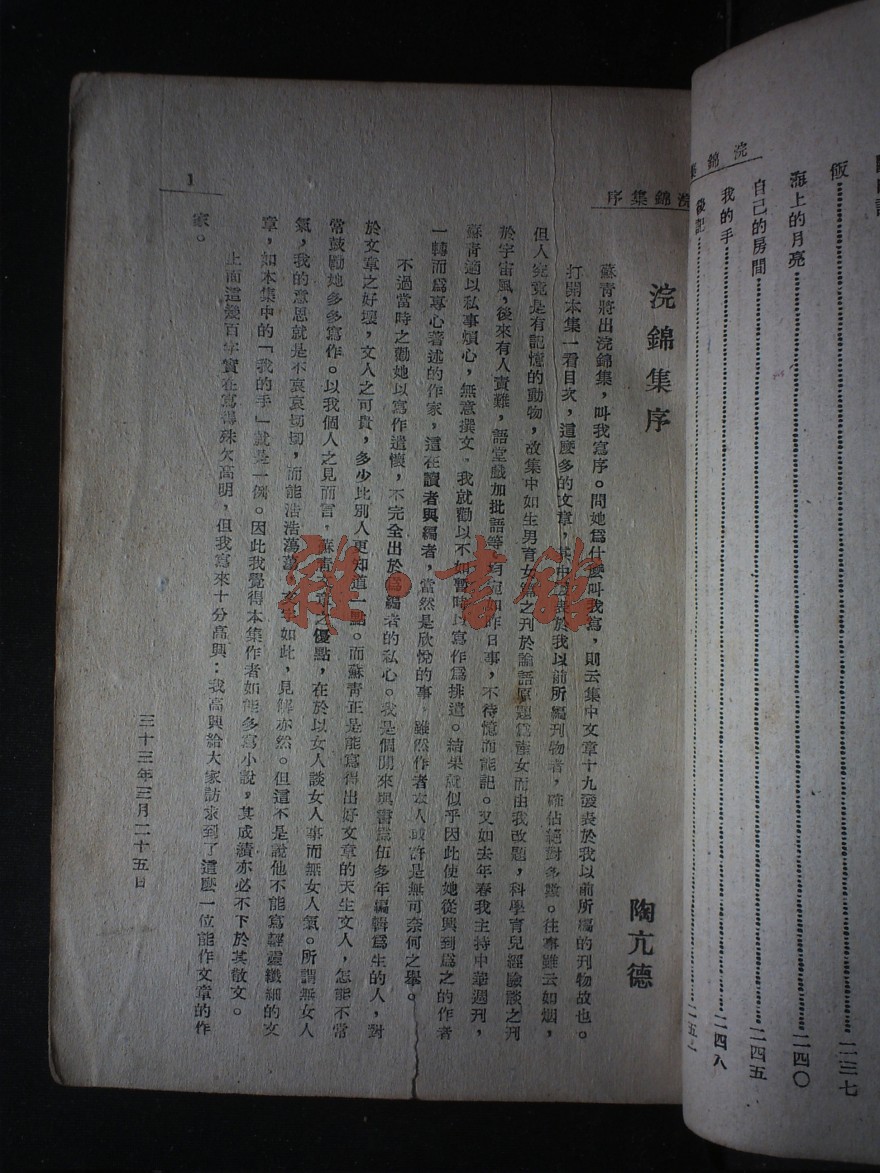 浣錦集
飯……二三七
海上的月亮……二四〇
自己的房間……二四五
我的手……二四八
後記……二五
浣錦集序
1
浣錦集序
陶亢德
蘇青將出浣錦集，叫我寫序。問她爲什麼叫我寫，則云集中文章十九發表於我以前所編的刊物故也。
打開本集一看目次，這麼多的文章，其中發表於我以前所編刊物者，確佔絕對多數。往事雖云如烟，
但人究竟是有記憶的動物，故集中如生男育女篇之刊於論語原題爲產女而由我改題，科學育兒經驗談之刊
於宇宙風，後來有人責難，語堂戲加批語等，均宛如昨日事，不待憶而能記。又如去年春我主持中華週刊，
蘇青適以私事煩心，無意撰文。我就勸以不如暫時以寫作爲排遣。結果就似乎因此使她從興到爲之的作者
一轉而爲專心著述的作家，這在讀者與編者，當然是欣悅的事，雖然作者本人或許是無可奈何之舉。
不過當時之勸她以寫作遣懷，不完全出於爲編者的私心。我是個閒來與書爲伍多年編輯爲生的人，對
於文章之好壞，文人之可貴，多少比別人更知道一點。而蘇青正是能寫得出好文章的天生文人，怎能不常
常鼓勵她多多寫作。以我個人之見而言，蘇青文章之優點，在於以女人談女人事而無女人氣。所謂無女人
氣，我的意思就是不哀哀切切，而能浩浩蕩蕩，文字如此，見解亦然。但這不是說他不能寫輕靈纖細的文
章，如本集中的「我的手」就是一例。因此我覺得本集作者如能多寫小說，其成績亦必不下於其散文。
上面這幾百字實在寫得殊欠高明，但我寫來十分高興：我高興給大家訪求到了這麼一位能作文章的作
家。
三十三年三月二十五日
雜·書館